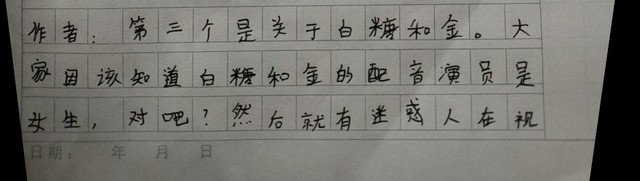 作者：第三个是关于白糖和金。大
家因该知道白糖和金的配音演员是
女生，对吧？然后就有迷惑人在视
日期： 年 月 日